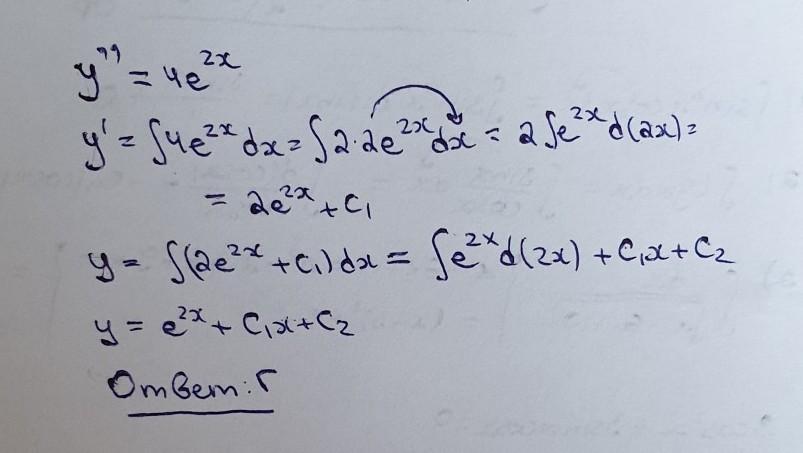 y'' = 4e^{2x}
y' = ∫4e^{2x}dx = ∫2·2e^{2x}dx = 2∫e^{2x}d(2x) =
= 2e^{2x} + C₁
y = ∫(2e^{2x} + C₁)dx = ∫e^{2x}d(2x) + C₁x + C₂
y = e^{2x} + C₁x + C₂
Ответ: Г